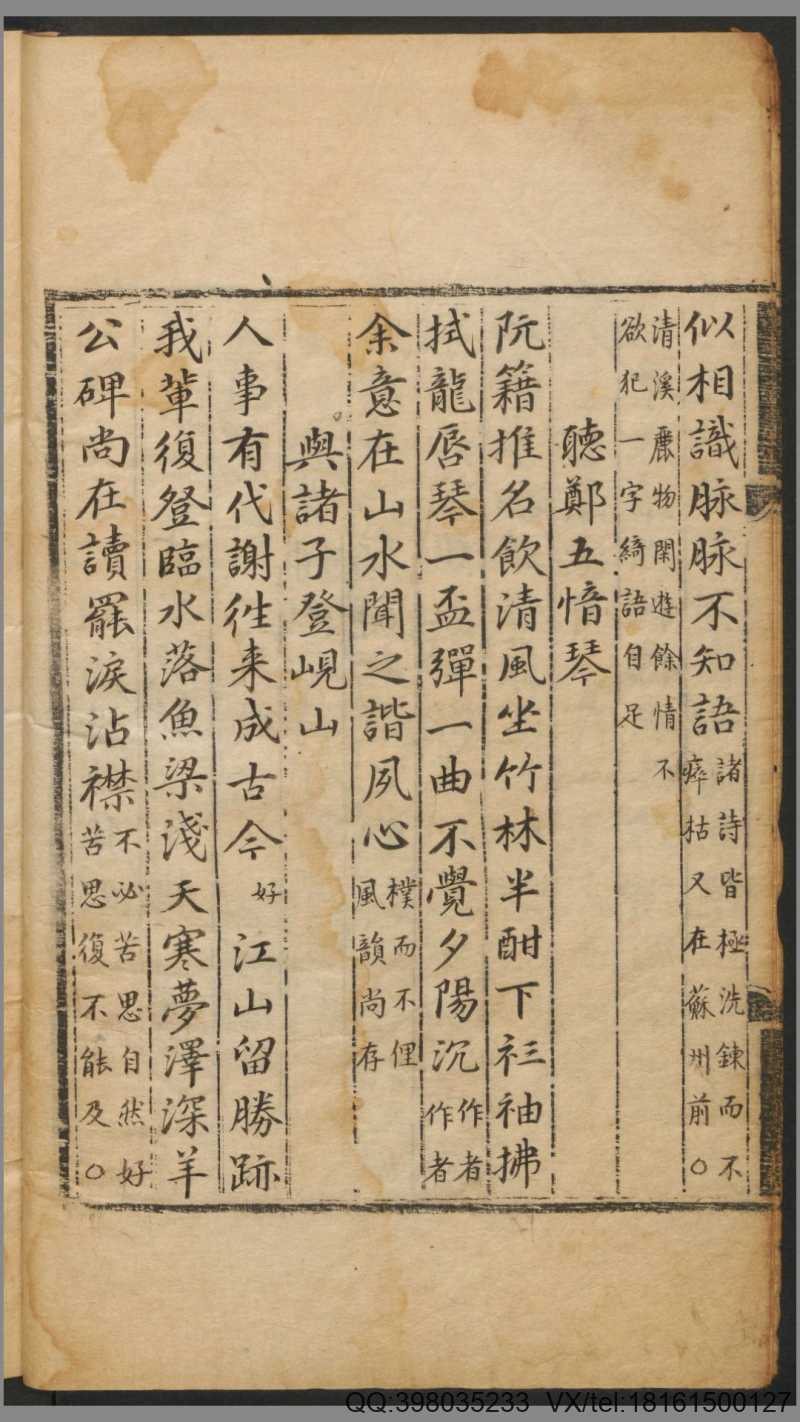 似相識脉脉不知語諸詩皆極洗鍊而不瘁枯又在蘇州前○
清溪麗物閑遊餘情不欲犯一字綺語自足
聽鄭五愔琴
阮籍推名飲清風坐竹林半酣下衫袖拂
拭龍唇琴一盃彈一曲不覺夕陽沉作者作者
余意在山水聞之諧夙心樸而不俚風韻尚存
與諸子登峴山
人事有代謝徃来成古今好江山留勝跡
我輩復登臨水落魚梁淺天寒夢澤深羊
公碑尚在讀罷淚沾襟不必苦思自然好苦思復不能及○
QQ:398035233 VX/tel:18161500127